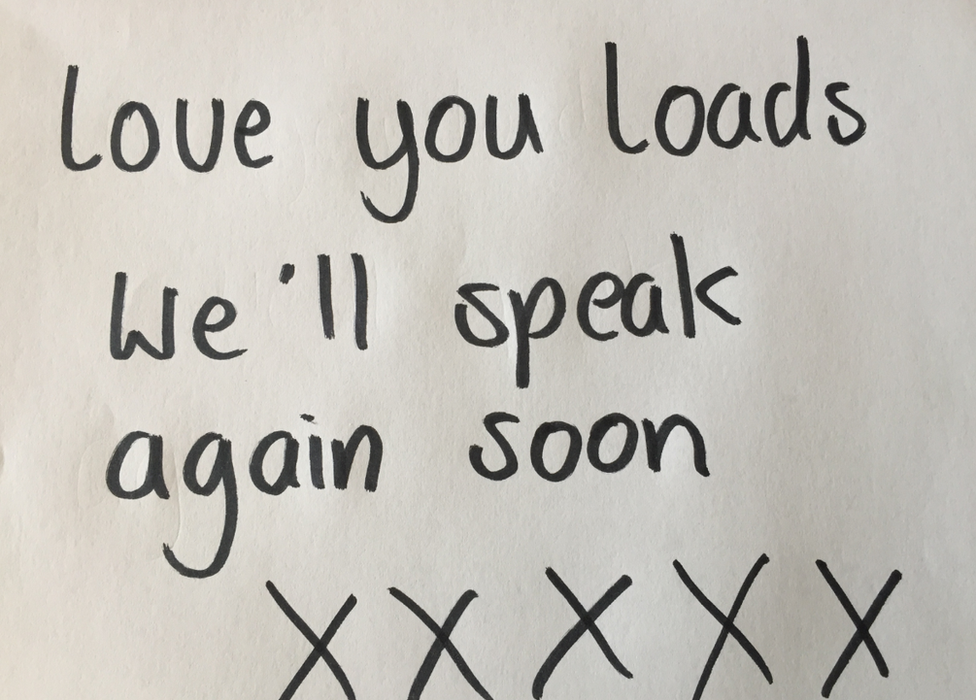 Love you loads
We'll speak
again soon
X X X X X